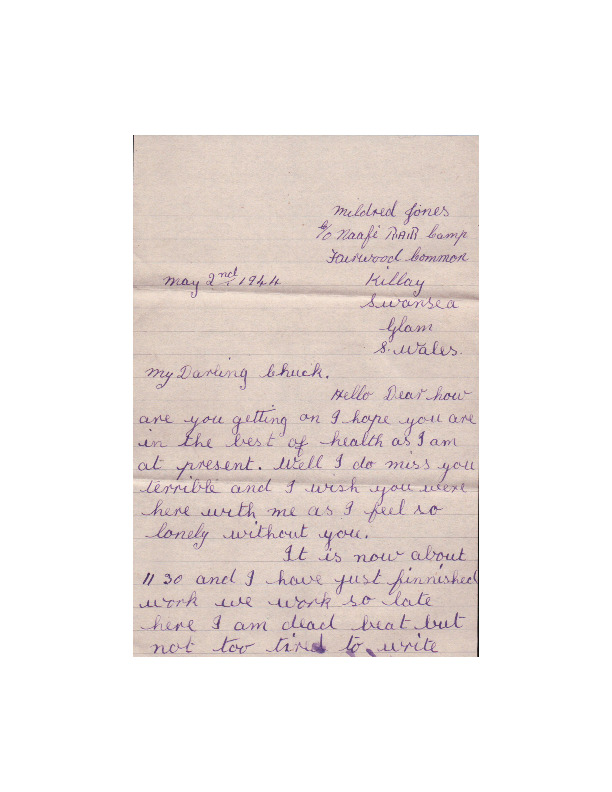 Mildred Jones
c/o Naafi RAF Camp
Fairwood Common
May 2nd 1944 Killay
Swansea
Glam
S. Wales.
My Darling Chuck.
Hello Dear how
are you getting on I hope you are
in the best of health as I am
at present. Well I do miss you
terrible and I wish you were
here with me as I feel so
lonely without you.
It is now about
11 30 and I have just finnished
work we work so late
here I am dead beat but
not too tired to write